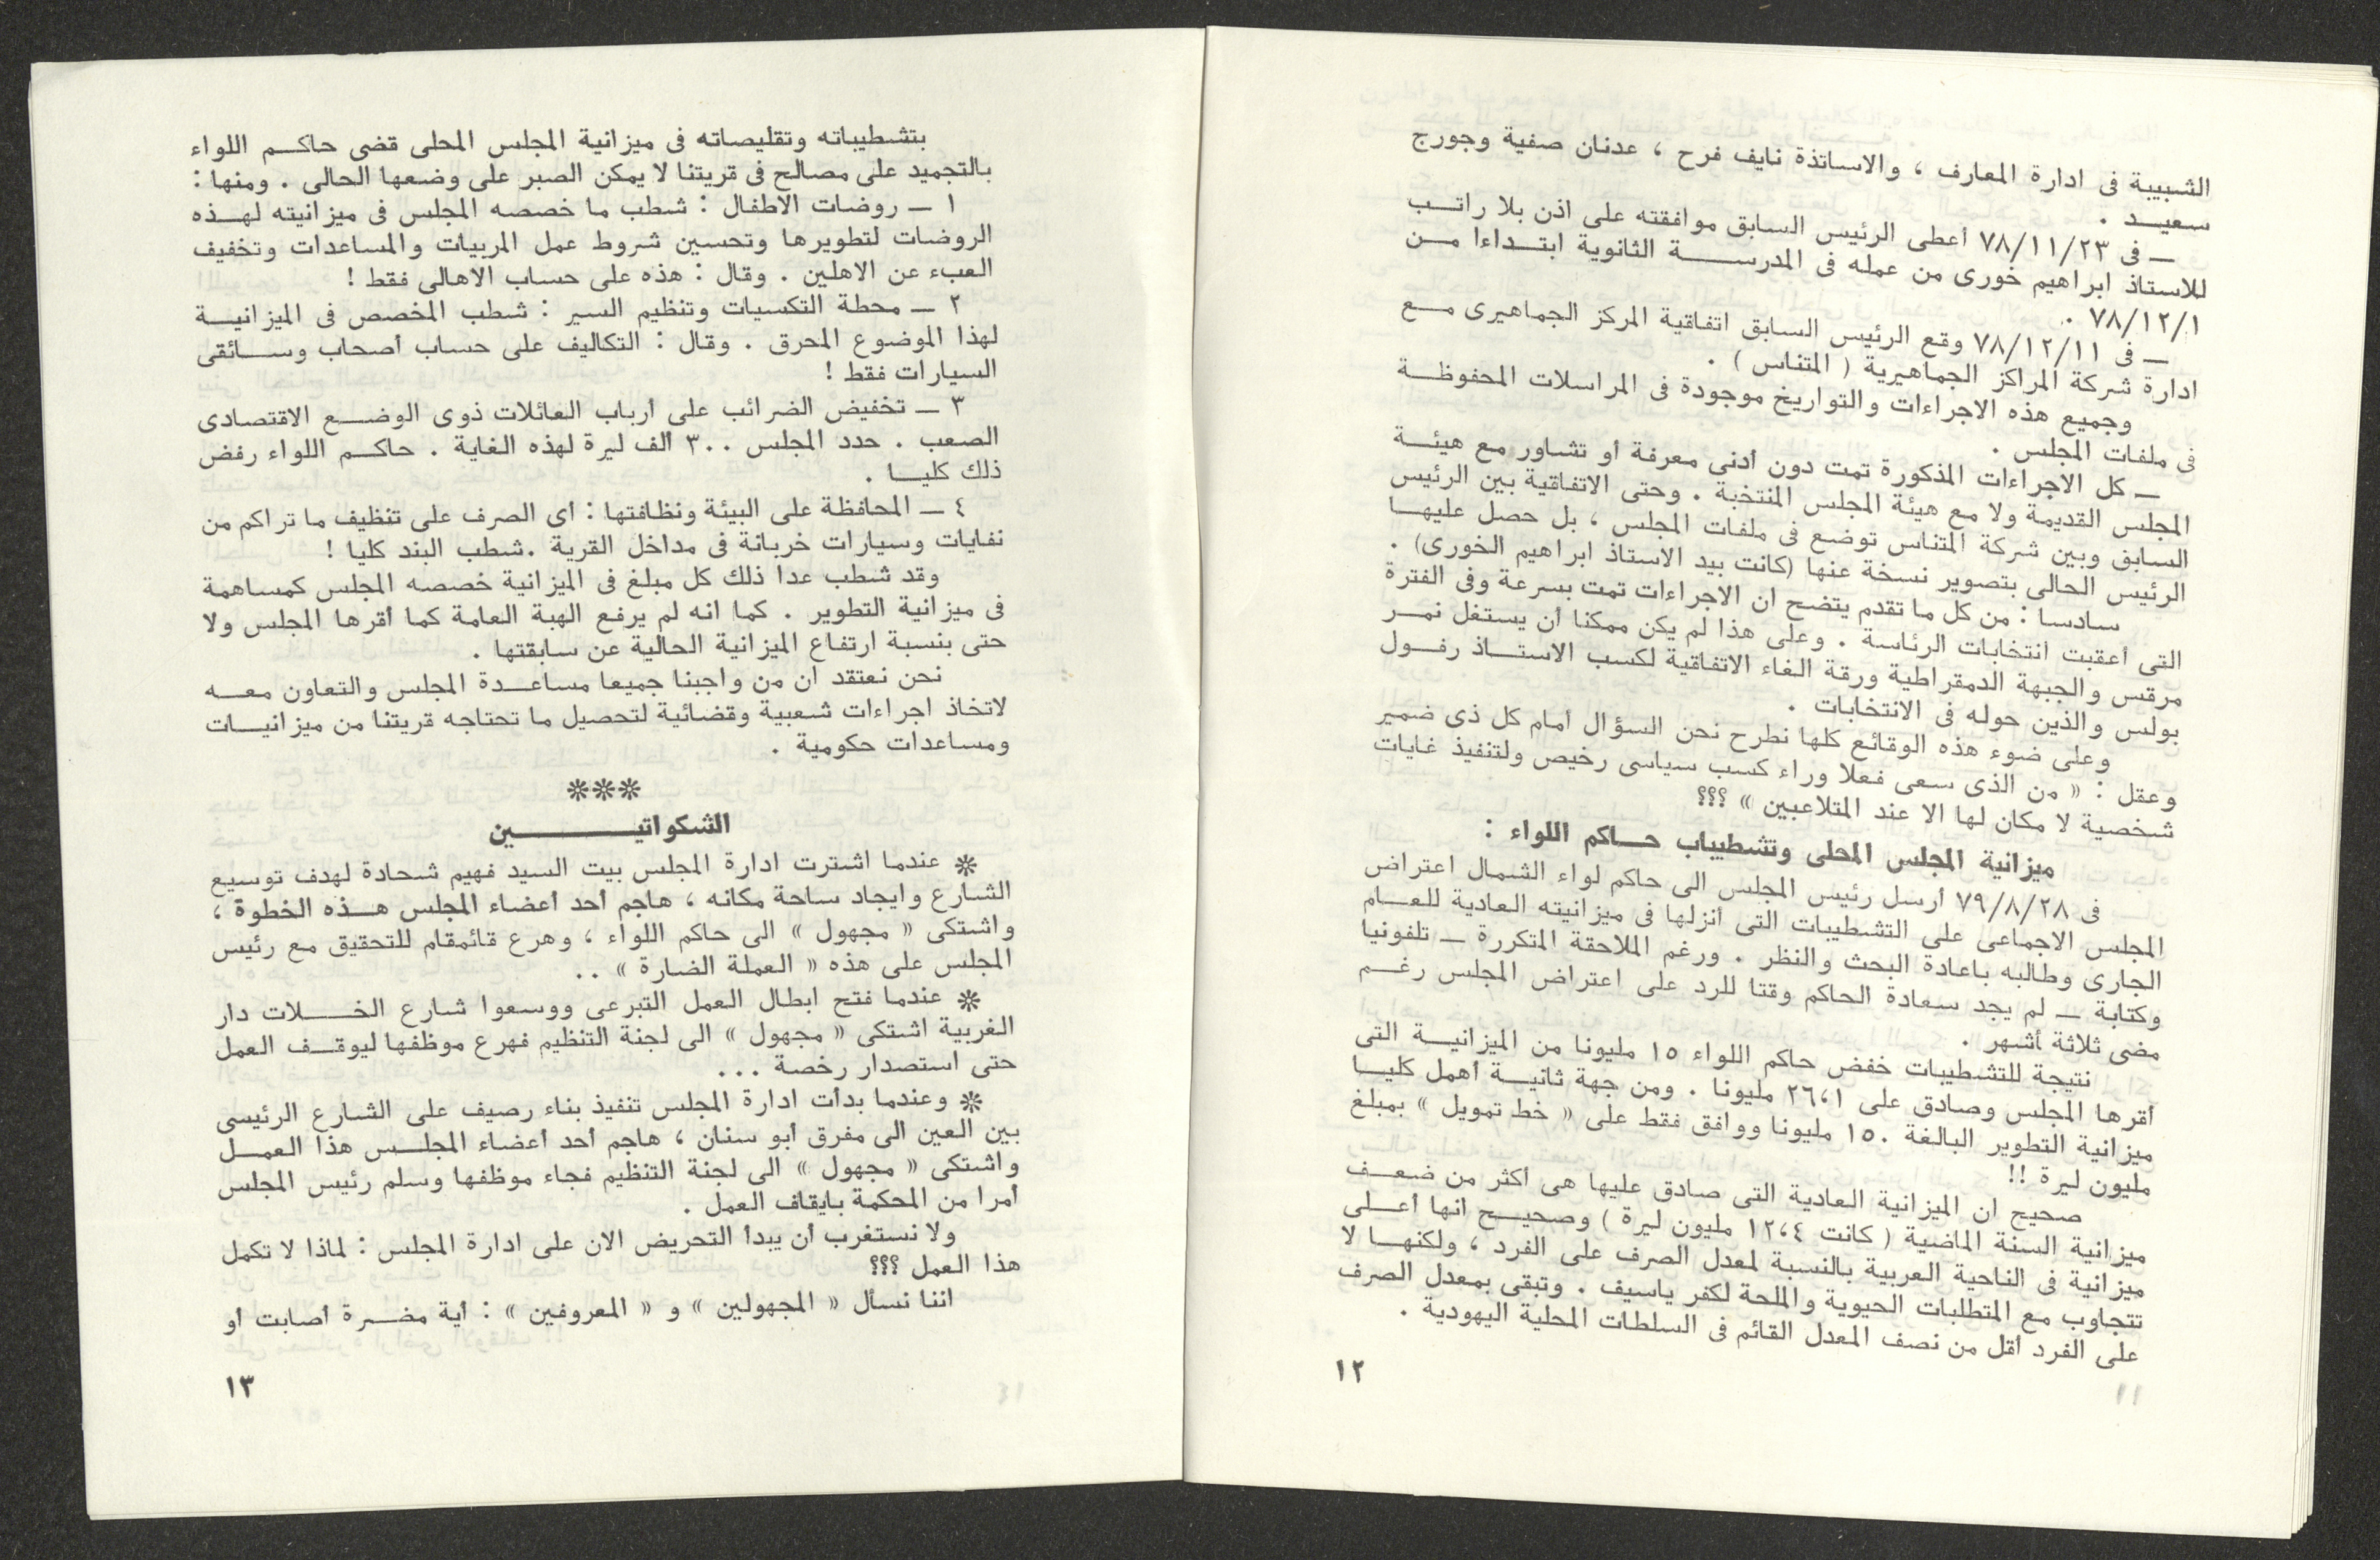 الشبيبة فى ادارة المعارف ، والاساتذة نايف فرح ، عدنان صفية وجورج
سعيـــد .
ـ فى ٧٨/١١/٢٣ أعطى الرئيس السابق موافقته على اذن بلا راتــب
للاستاذ ابراهيم خورى من عمله فى المدرســـة الثانوية ابتـداءا مــن
٧٨/١٢/١ .
ـ فى ٧٨/١٢/١١ وقع الرئيس السابق اتفاقية المركز الجماهيرى مــع
ادارة شركة المراكز الجماهيرية ( المتناس ) .
وجميع هذه الاجراءات والتواريخ موجودة فى المراسلات المحفوظــة
فى ملفات المجلس .
ـ كل الاجراءات المذكورة تمت دون أدنى معرفة أو تشاور مع هيئــة
المجلس القديمة ولا مع هيئة المجلس المنتخبة . وحتى الاتفاقية بين الرئيس
السابق وبين شركة المتناس توضع فى ملفات المجلس ، بل حصل عليهــا
الرئيس الحالى بتصوير نسخة عنها (كانت بيد الاستاذ ابراهيم الخورى) .
سادسا : من كل ما تقدم يتضح ان الاجراءات تمت بسرعة وفى الفترة
التى أعقبت انتخابات الرئاسة . وعلى هذا لم يكن ممكنا أن يستغل نمــر
مرقس والجبهة الدمقراطية ورقة الغاء الاتفاقية لكسب الاستــاذ رفــول
بولس والذين حوله فى الانتخابات .
وعلى ضوء هذه الوقائع كلها نطرح نحن السؤال أمام كل ذى ضمير
وعقل : « من الذى سعى فعلا وراء كسب سياسى رخيص ولتنفيذ غايات
شخصية لا مكان لها الا عند المتلاعبين » ؟؟؟
ميزانية المجلس المحلى وتشطيباب حـــاكم اللواء :
فى ٧٩/٨/٢٨ أرسل رئيس المجلس الى حاكم لواء الشمال اعتراض
المجلس الاجماعى على التشطيبات التى أنزلها فى ميزانيته العادية للعــام
الجارى وطالبه باعادة البحث والنظر . ورغم الملاحقة المتكررة ـ تلفونيا
وكتابة ـ لم يجد سعادة الحاكم وقتا للرد على اعتراض المجلس رغــم
مضى ثلاثة أشهر .
نتيجة للتشطيبات خفض حاكم اللواء ١٥ مليونا من الميزانيــة التى
أقرها المجلس وصادق على ٢٦،١ مليونا . ومن جهة ثانيــة أهمل كليــا
ميزانية التطوير البالغة ١٥٠ مليونا ووافق فقط على « خط تمويل » بمبلغ
مليون ليرة !!
صحيح ان الميزانية العادية التى صادق عليها هى أكثر من ضعــف
ميزانية السنة الماضية ( كانت ١٢،٤ مليون ليرة ) وصحيــح انها أعــلى
ميزانية فى الناحية العربية بالنسبة لمعدل الصرف على الفرد ، ولكنهــا لا
تتجاوب مع المتطلبات الحيوية والملحة لكفر ياسيف . وتبقى بمعدل الصرف
على الفرد أقل من نصف المعدل القائم فى السلطات المحلية اليهودية .
١٢
بتشطيباته وتقليصاته فى ميزانية المجلس المحلى قضى حاكــم اللواء
بالتجميد على مصالح فى قريتنا لا يمكن الصبر على وضعها الحالى . ومنها :
١ ـ روضات الاطفال : شطب ما خصصه المجلس فى ميزانيته لهــذه
الروضات لتطويرها وتحسين شروط عمل المربيات والمساعدات وتخفيف
العبء عن الاهلين . وقال : هذه على حساب الاهالى فقط !
٢ ـ محطة التكسيات وتنظيم السير : شطب المخصص فى الميزانيــة
لهذا الموضوع المحرق . وقال : التكاليف على حساب أصحاب وســائقى
السيارات فقط !
٣ ـ تخفيض الضرائب على أرباب العائلات ذوى الوضــع الاقتصادى
الصعب . حدد المجلس ٣٠٠ ألف ليرة لهذه الغاية . حاكــم اللواء رفض
ذلك كليــا .
٤ ـ المحافظة على البيئة ونظافتها : اى الصرف على تنظيف ما تراكم من
نفايات وسيارات خربانة فى مداخل القرية .شطب البند كليا !
وقد شطب عدا ذلك كل مبلغ فى الميزانية خصصه المجلس كمساهمة
فى ميزانية التطوير . كما انه لم يرفع الهبة العامة كما أقرها المجلس ولا
حتى بنسبة ارتفاع الميزانية الحالية عن سابقتها .
نحن نعتقد ان من واجبنا جميعا مساعــدة المجلس والتعاون معــه
لاتخاذ اجراءات شعبية وقضائية لتحصيل ما تحتاجه قريتنا من ميزانيــات
ومساعدات حكومية .
***
الشكواتيـــــــين
* عندما اشترت ادارة المجلس بيت السيد فهيم شحادة لهدف توسيع
الشارع وايجاد ساحة مكانه ، هاجم أحد أعضاء المجلس هــذه الخطوة ،
واشتكى « مجهول » الى حاكم اللواء ، وهرع قائمقام للتحقيق مع رئيس
المجلس على هذه « العملة الضارة » ..
* عندما فتح ابطال العمل التبرعى ووسعوا شارع الخـــلات دار
الغربية اشتكى « مجهول » الى لجنة التنظيم فهرع موظفها ليوقــف العمل
حتى استصدار رخصة ...
* وعندما بدأت ادارة المجلس تنفيذ بناء رصيف على الشارع الرئيسى
بين العين الى مفرق أبو سنان ، هاجم أحد أعضاء المجلــس هذا العمــل
واشتكى « مجهول » الى لجنة التنظيم فجاء موظفها وسلم رئيس المجلس
أمرا من المحكمة بايقاف العمل .
ولا نستغرب أن يبدأ التحريض الان على ادارة المجلس : لماذا لا تكمل
هذا العمل ؟؟؟
اننا نسأل « المجهولين » و « المعروفين » : أية مضــرة أصابت أو
١٣